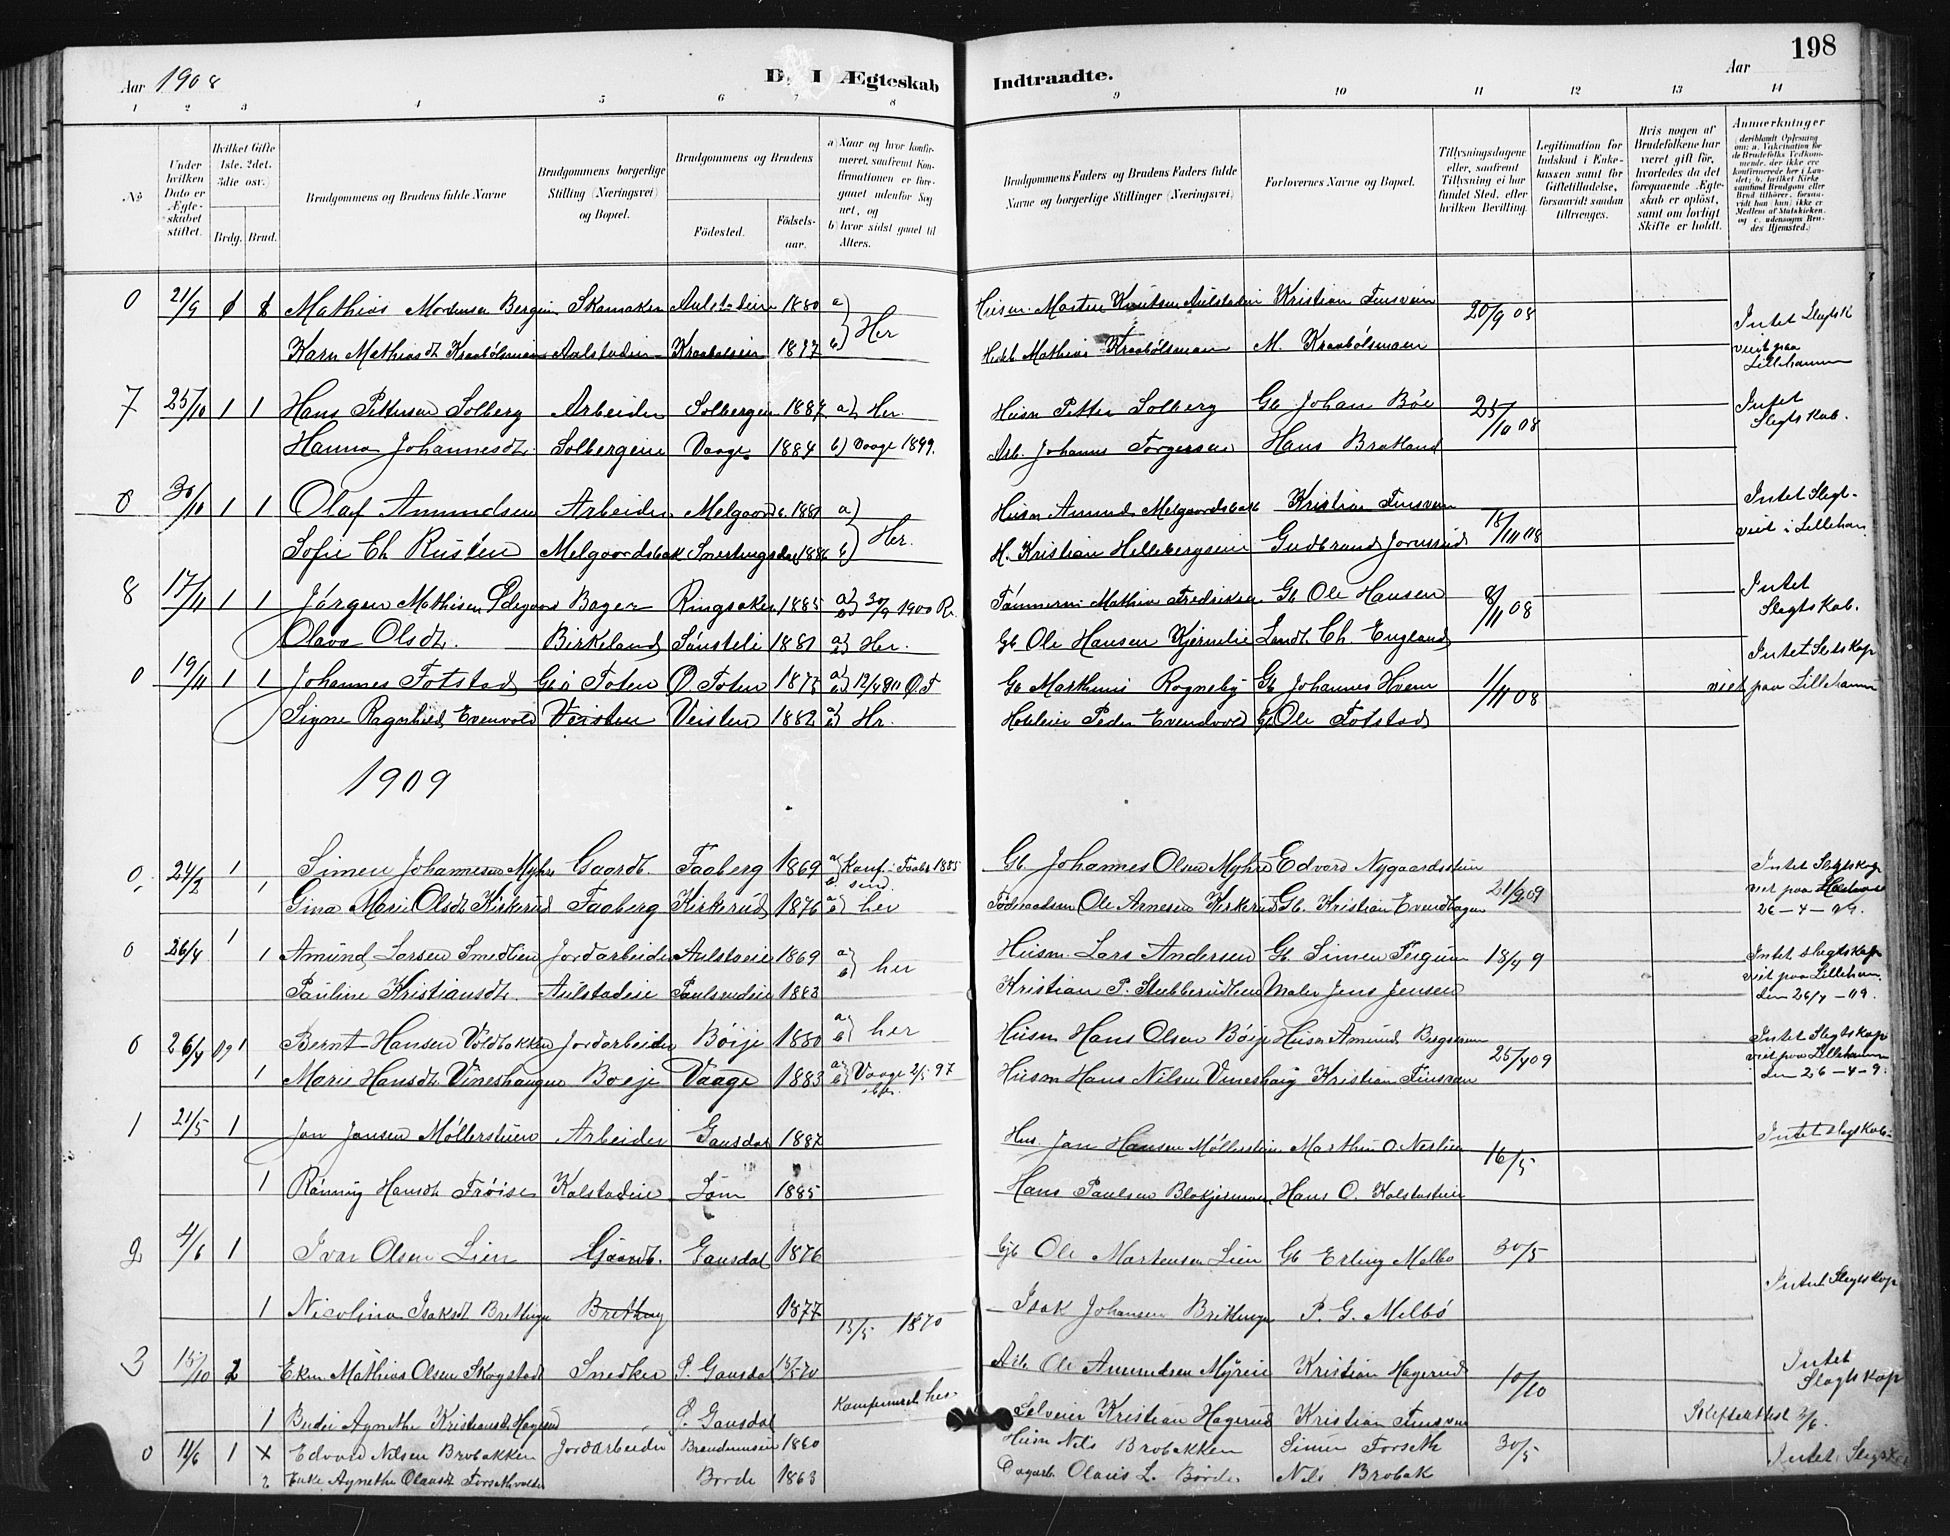 198
Aar 1908
D. I Ægteskab
Indtraadte.
Aar
1 2 3 4 5 6 7 8 9 10 11 12 13 14
No
Under hvilken Dato er Ægteskabet stiftet.
Hvilket Gifte 1ste. 2det. 3die osv.)
Brdg. Brud.
Brudgommens og Brudens fulde Navne
Brudgommens borgerlige Stilling (Næringsvei) og Bopæl.
Brudgommens og Brudens
Fødested.
Fødselsaar.
a) Naar og hvor konfirmeret, saafremt Konfirmationen er foregaaet udenfor Sognet, og b) hvor sidst gaaet til Alters.
Brudgommens Faders og Brudens Faders fulde Navne og borgerlige Stillinger (Næringsvei)
Forlovernes Navne og Bopæl.
Tillysningsdagene eller, saafremt Tillysning ei har fundet Sted, efter hvilken Bevilling.
Legitimation for Indskud i Enkekassen samt for Giftetilladelse, forsaavidt saadan tiltrænges.
Hvis nogen af Brudefolkene har været gift før, hvorledes da det foregaaende Ægteskab er opløst, samt om lovligt Skifte er holdt.
Anmerkninger
0 21/9 Mathias Mortensen Bergum Skomaker Aulstadeie 1880 a) Husm. Morten Knutsen Aulstadeie Kristian Finsveen 20/9 08 Intet Slegtsk
Karn Mathiasdt. Kraabølsmoen Aulstadeie Kraabøleie b) Her Mathias Kraabølsmoen M. Kraabølsmoen viet paa Lillehamm
7 25/10 1 1 Hans Pettersen Solberg Arbeider Solbergeie 1887 a) Her. Husm Petter Solberg Gb. Johan Bøe 25/10 08 Intet Slegtskab.
Hanna Johannesdt. Solbergeie Vaage 1884 b) Vaage 1899. Arb. Johannes Torgersen Hans Brutlund
0 30/10 1 1 Olaf Amundsen Arbeider 1881 a) Husm Amund Melgaardsbak Kristian Finsveen 18/10 08 Intet Slegt-
Sofie Ch Rusten Melgaardsbak 1886 b) Her. H. Kristian Hellebergseie Gudbrand Jorusrud viet i Lilleham
8 17/11 1 1 Jørgen Mathisen Ødegaard Bager Ringsaker 1885 1900 R. Tømmerm Mathias Fredriksen Gb Ole Hansen 8/11 08 Intet Slegtskab.
Olava Olsdt. Birkeland Sønsteli 1881 Her. Gb Ole Hansen Kjernlie Landh. Ch England
0 19/11 1 1 Johannes Fotstad Gb i Toten Ø Toten 1875 Ø.T Gb Marthinus Rogneby Gb Johannes Hvem 1/11 08 Intet Slektskap viet paa Lillehamm
Signe Ragnhild Evenvold Veisten Veisten 1882 Hr. Hoteleier Peder Evendvold Gb Ole Fotstad
1909
0 24/2 1 Simen Johannesen Myhre Gaardb. Faaberg 1869 Konf. i Faab. 1885 Gb. Johannes Olsen Myhre Edvard Nygaardsstuen Intet Slegtskap
1 Gina Marie Olsdt. Kirkerud Faaberg Kirkerud 1876 her Ole Arnesen Kirkerud Gb. Kristian Evendhagen 21/2 09 viet paa 26-4-09.
0 26/4 1 1 Amund Larsen Smedlien Jordarbeider Aulstadeie 1869 Husm Lars Andersen Gb. Simen Fergum 18/4 9 Intet slegtskap
Pauline Kristiansdt. Aulstadeie Paulsrudeie 1883 her Kristian P. Stubberudlien Maler Jens Jensen viet paa Lilleham. den 26/4-09.
0 26/4 09 1 Bernt Hansen Voldbakken Jordarbeider Bøije 1880 her Husm Hans Olsen Bøije Husm Amund 25/4 09 Intet Slegtskap
1 Marie Hansdt. Vineshaugen Boeje Vaage 1883 Vaage 2/5 97 Husm Hans Nilsen Vineshaug Kristian Finsveen viet paa Lillehamm den 26-4-9.
1 21/5 1 Jon Jonsen Møllerstuen Arbeider Gausdal 1887 Hus. Jon Hansen Møllerstuen Marthin O. Nestien 16/5 Intet slegtskab.
1 Rønnug Hansdt Frøise Kolstadeie Lom 1885 Hans Paulsen Hans O. Kolstadeie
2 4/6 1 Ivar Olsen Lien Gaardb. Gausdal 1876 Gb Ole Martensen Lien Gb Erling Melbø 30/5 Intet Slegtskap
1 Nicolina Isaksdt Brettinge 1877 Isak Johansen Brettinge P. G. Melbø
3 15/10 2 Ekm Mathias Olsen Skogstad Snedker Ø. Gausdal 15/5 70 15/5 1870 Arb. Ole Amundsen Myreie Kristian Hagerud 10/10 Intet Slegtskap
1 Agnethe Kristiansdt. Hagerud Ø. Gausdal Konfirmeret her. Selveier Kristian Hagerud Kristian Finsveen Skifteattest 2/6.
0 11/6 1 Edvard Nilsen Brobakken Jordarbeider 1860 Husm Nils Brobakken Simen Forseth 30/5 Intet Slegtsk
2 Enke Agnethe Olausdt. Borde 1863 Dagarb. Olaus L. Børde Nils Brobak